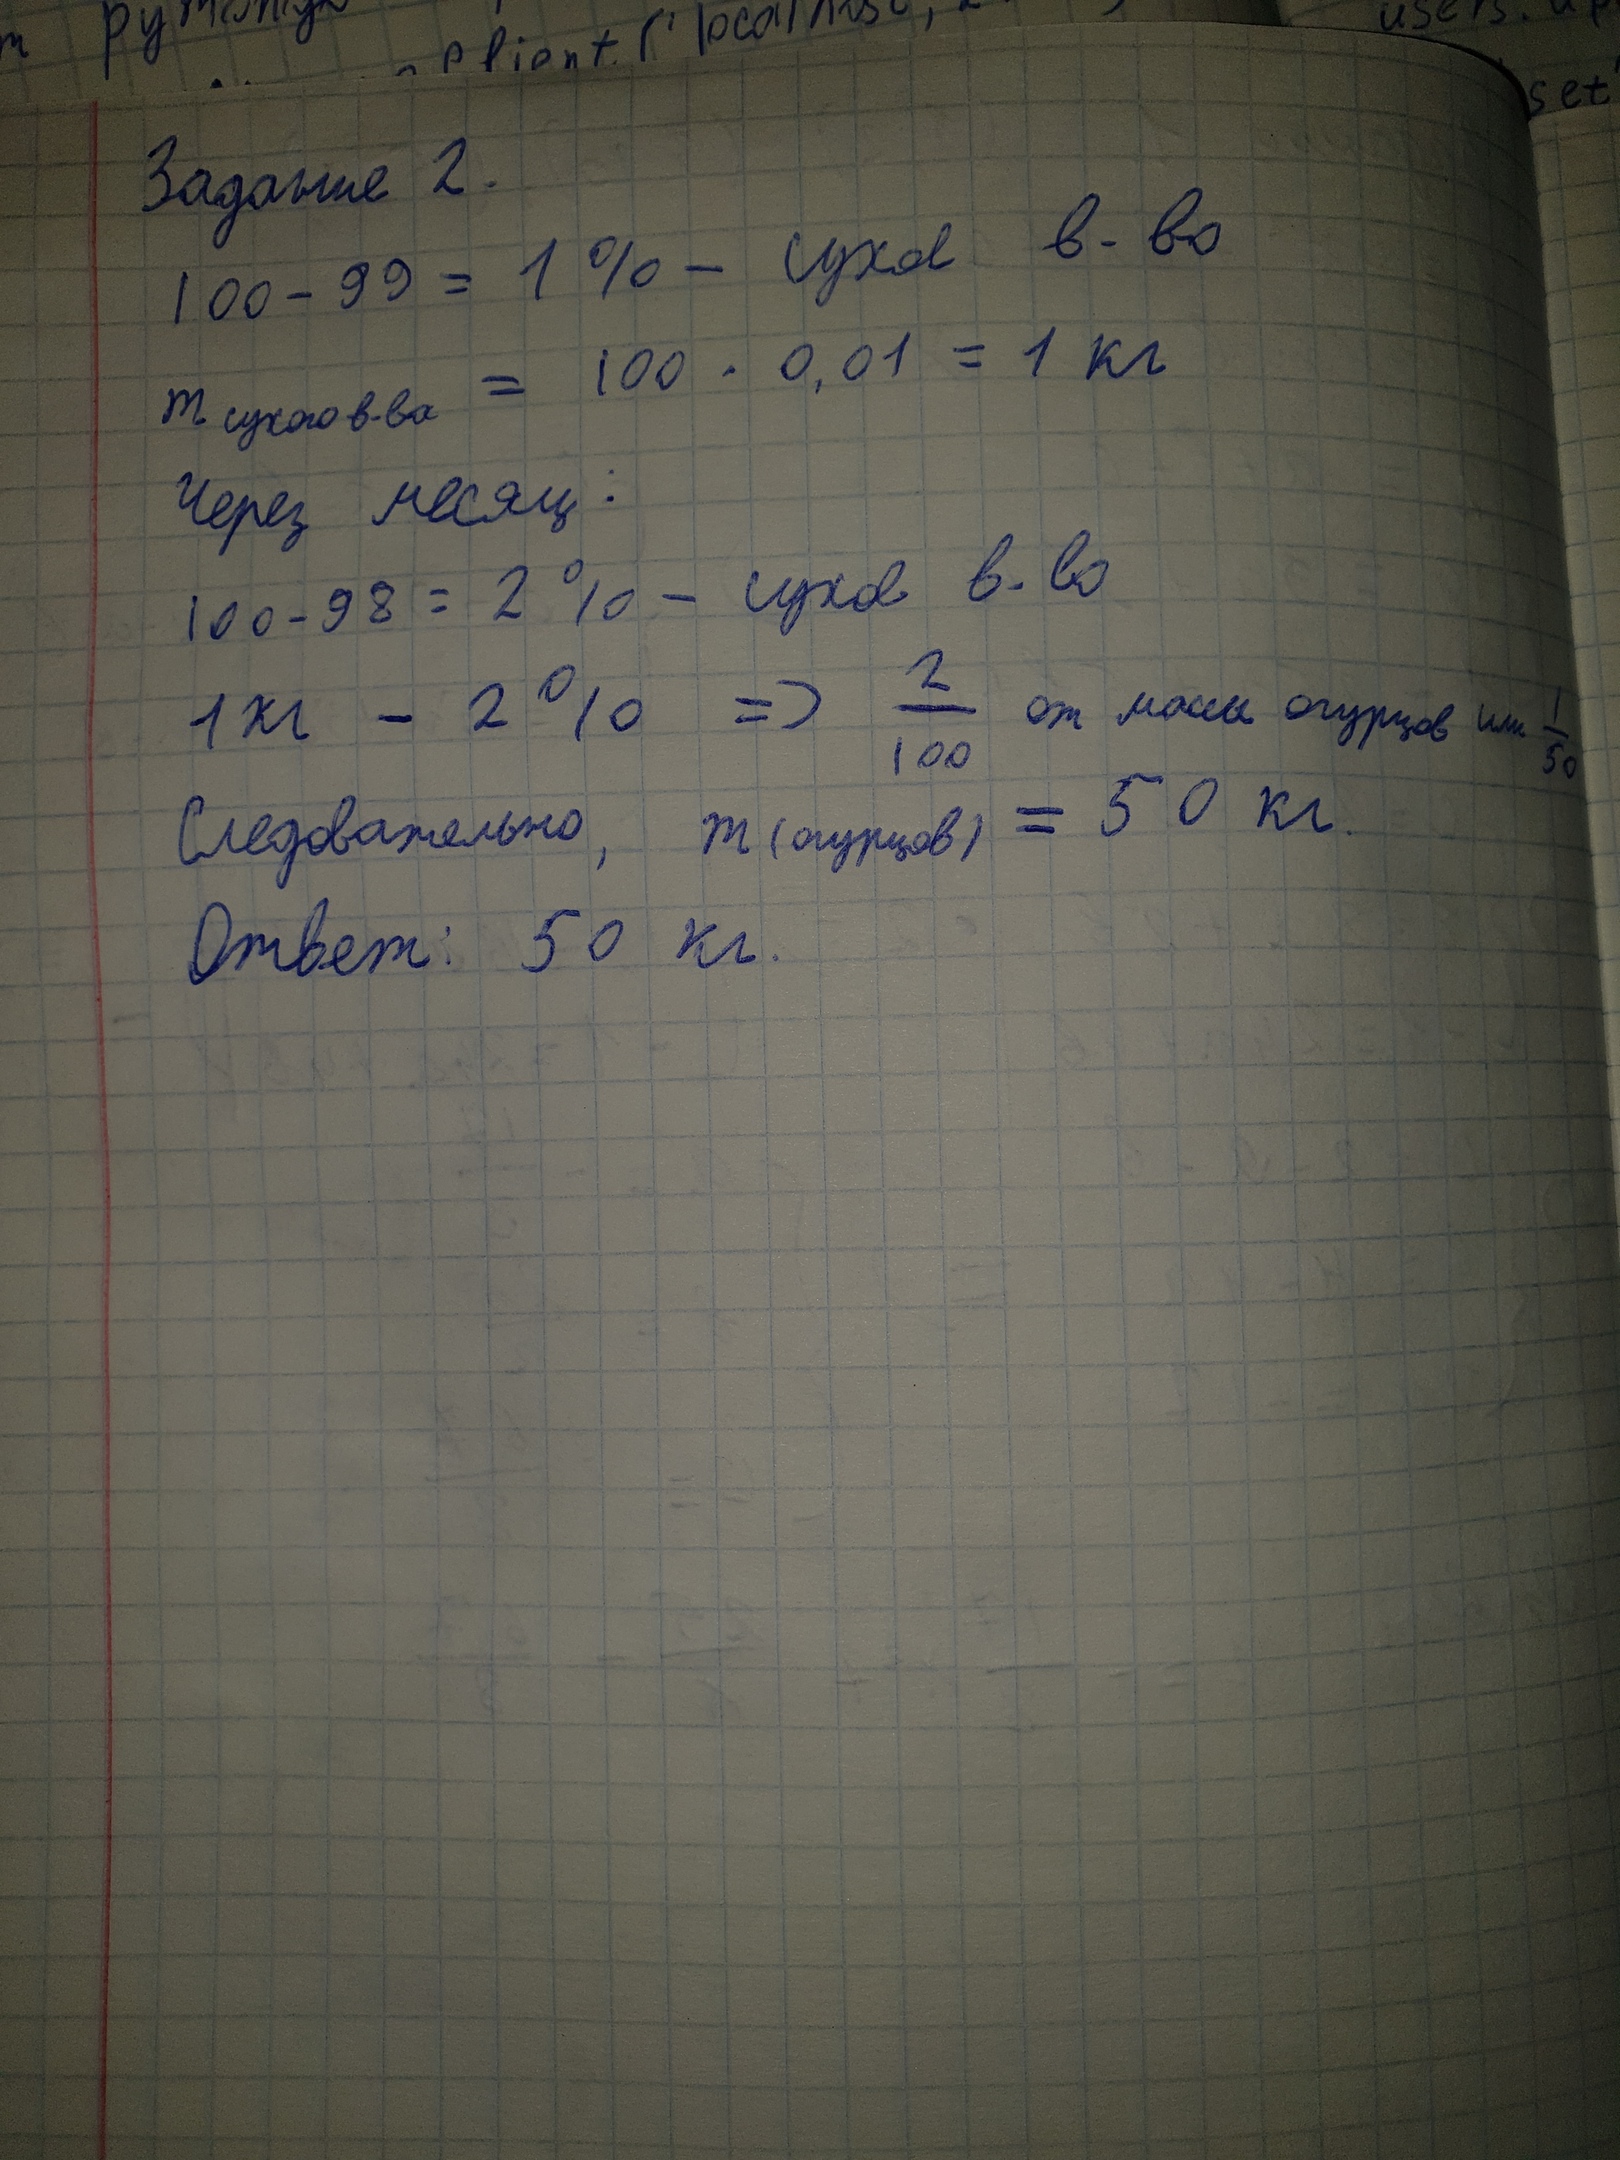 client ('localhost',
users.
set
Задание 2.
100-99 = 1% - сухое в-во
m сухого в-ва = 100 · 0,01 = 1 кг
Через месяц:
100-98 = 2% - сухое в-во
1кг - 2% => 2/100 от массы огурцов или 1/50
Следовательно, m(огурцов) = 50 кг.
Ответ: 50 кг.